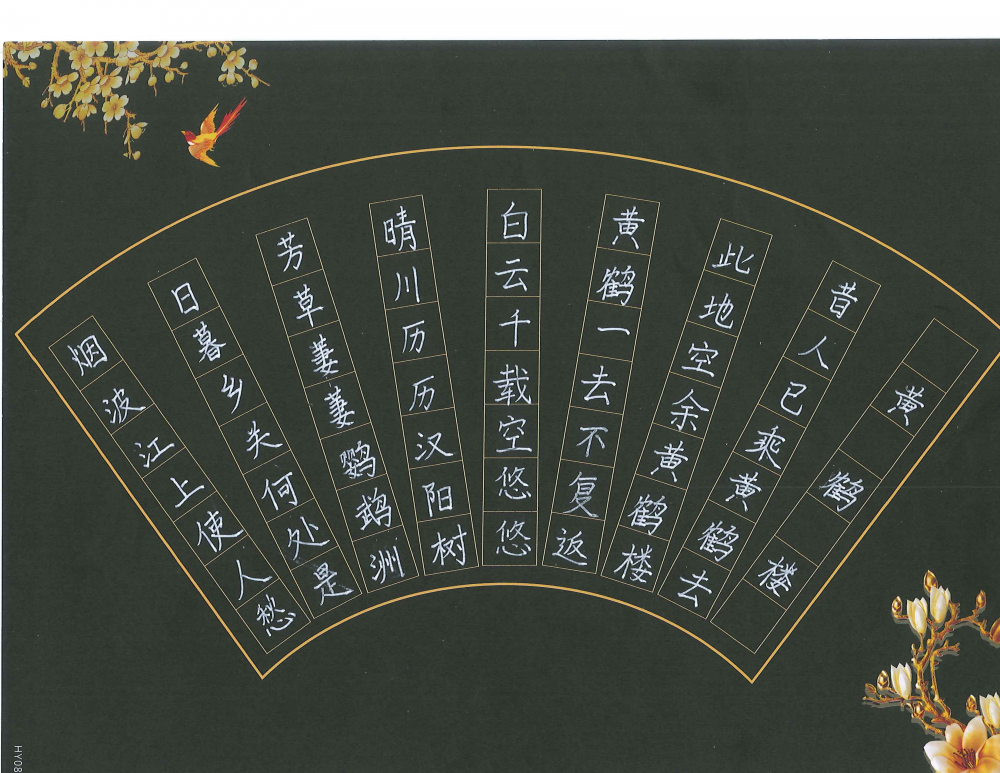 黄鹤楼
昔人已乘黄鹤去
此地空余黄鹤楼
黄鹤一去不复返
白云千载空悠悠
晴川历历汉阳树
芳草萋萋鹦鹉洲
日暮乡关何处是
烟波江上使人愁
HY08